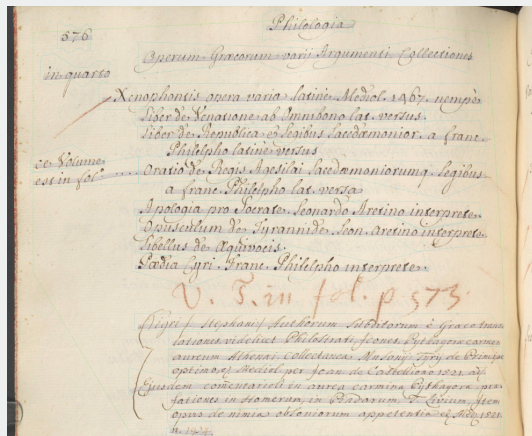 576
Philologia
Operum Græcorum varii Argumenti Collectiones
in quarto
Xenophontis opera varia latine Mediol. 1467. nempe
Liber de Venatione ab Omnibono lat. versus.
Liber de Republica & legibus Lacedæmonior. a Franc.
Philelpho latine versus
ce Volume
est in fol°
Oratio de Regis Agesilai Lacedæmoniorumq. legibus
a franc. Philelpho lat. versa
Apologia pro Socrate. Leonardo Aretino interprete.
Opusculum de Tyrannide Leon. Aretino interprete.
Libellus de Æquivocis.
Pædia Cyri. Franc. Philelpho interprete.
V. T. in fol. p 573.
Nigri Stephani Authorum subditorum e Græco trans
lationes videlicet Philostrati Icones, Pythagoræ carmen
aureum Athenæi Collectanea Musonij Tyrij de Principe
optimo Mediol. per Joan. de Castellione 1521. ad
Ejusdem comentarioli in aurea carmina Pythagoræ præ
fationes in Homerum, in Pindarum T. Livium Item
opus de nimia obsoniorum appetentia Med. 1521.